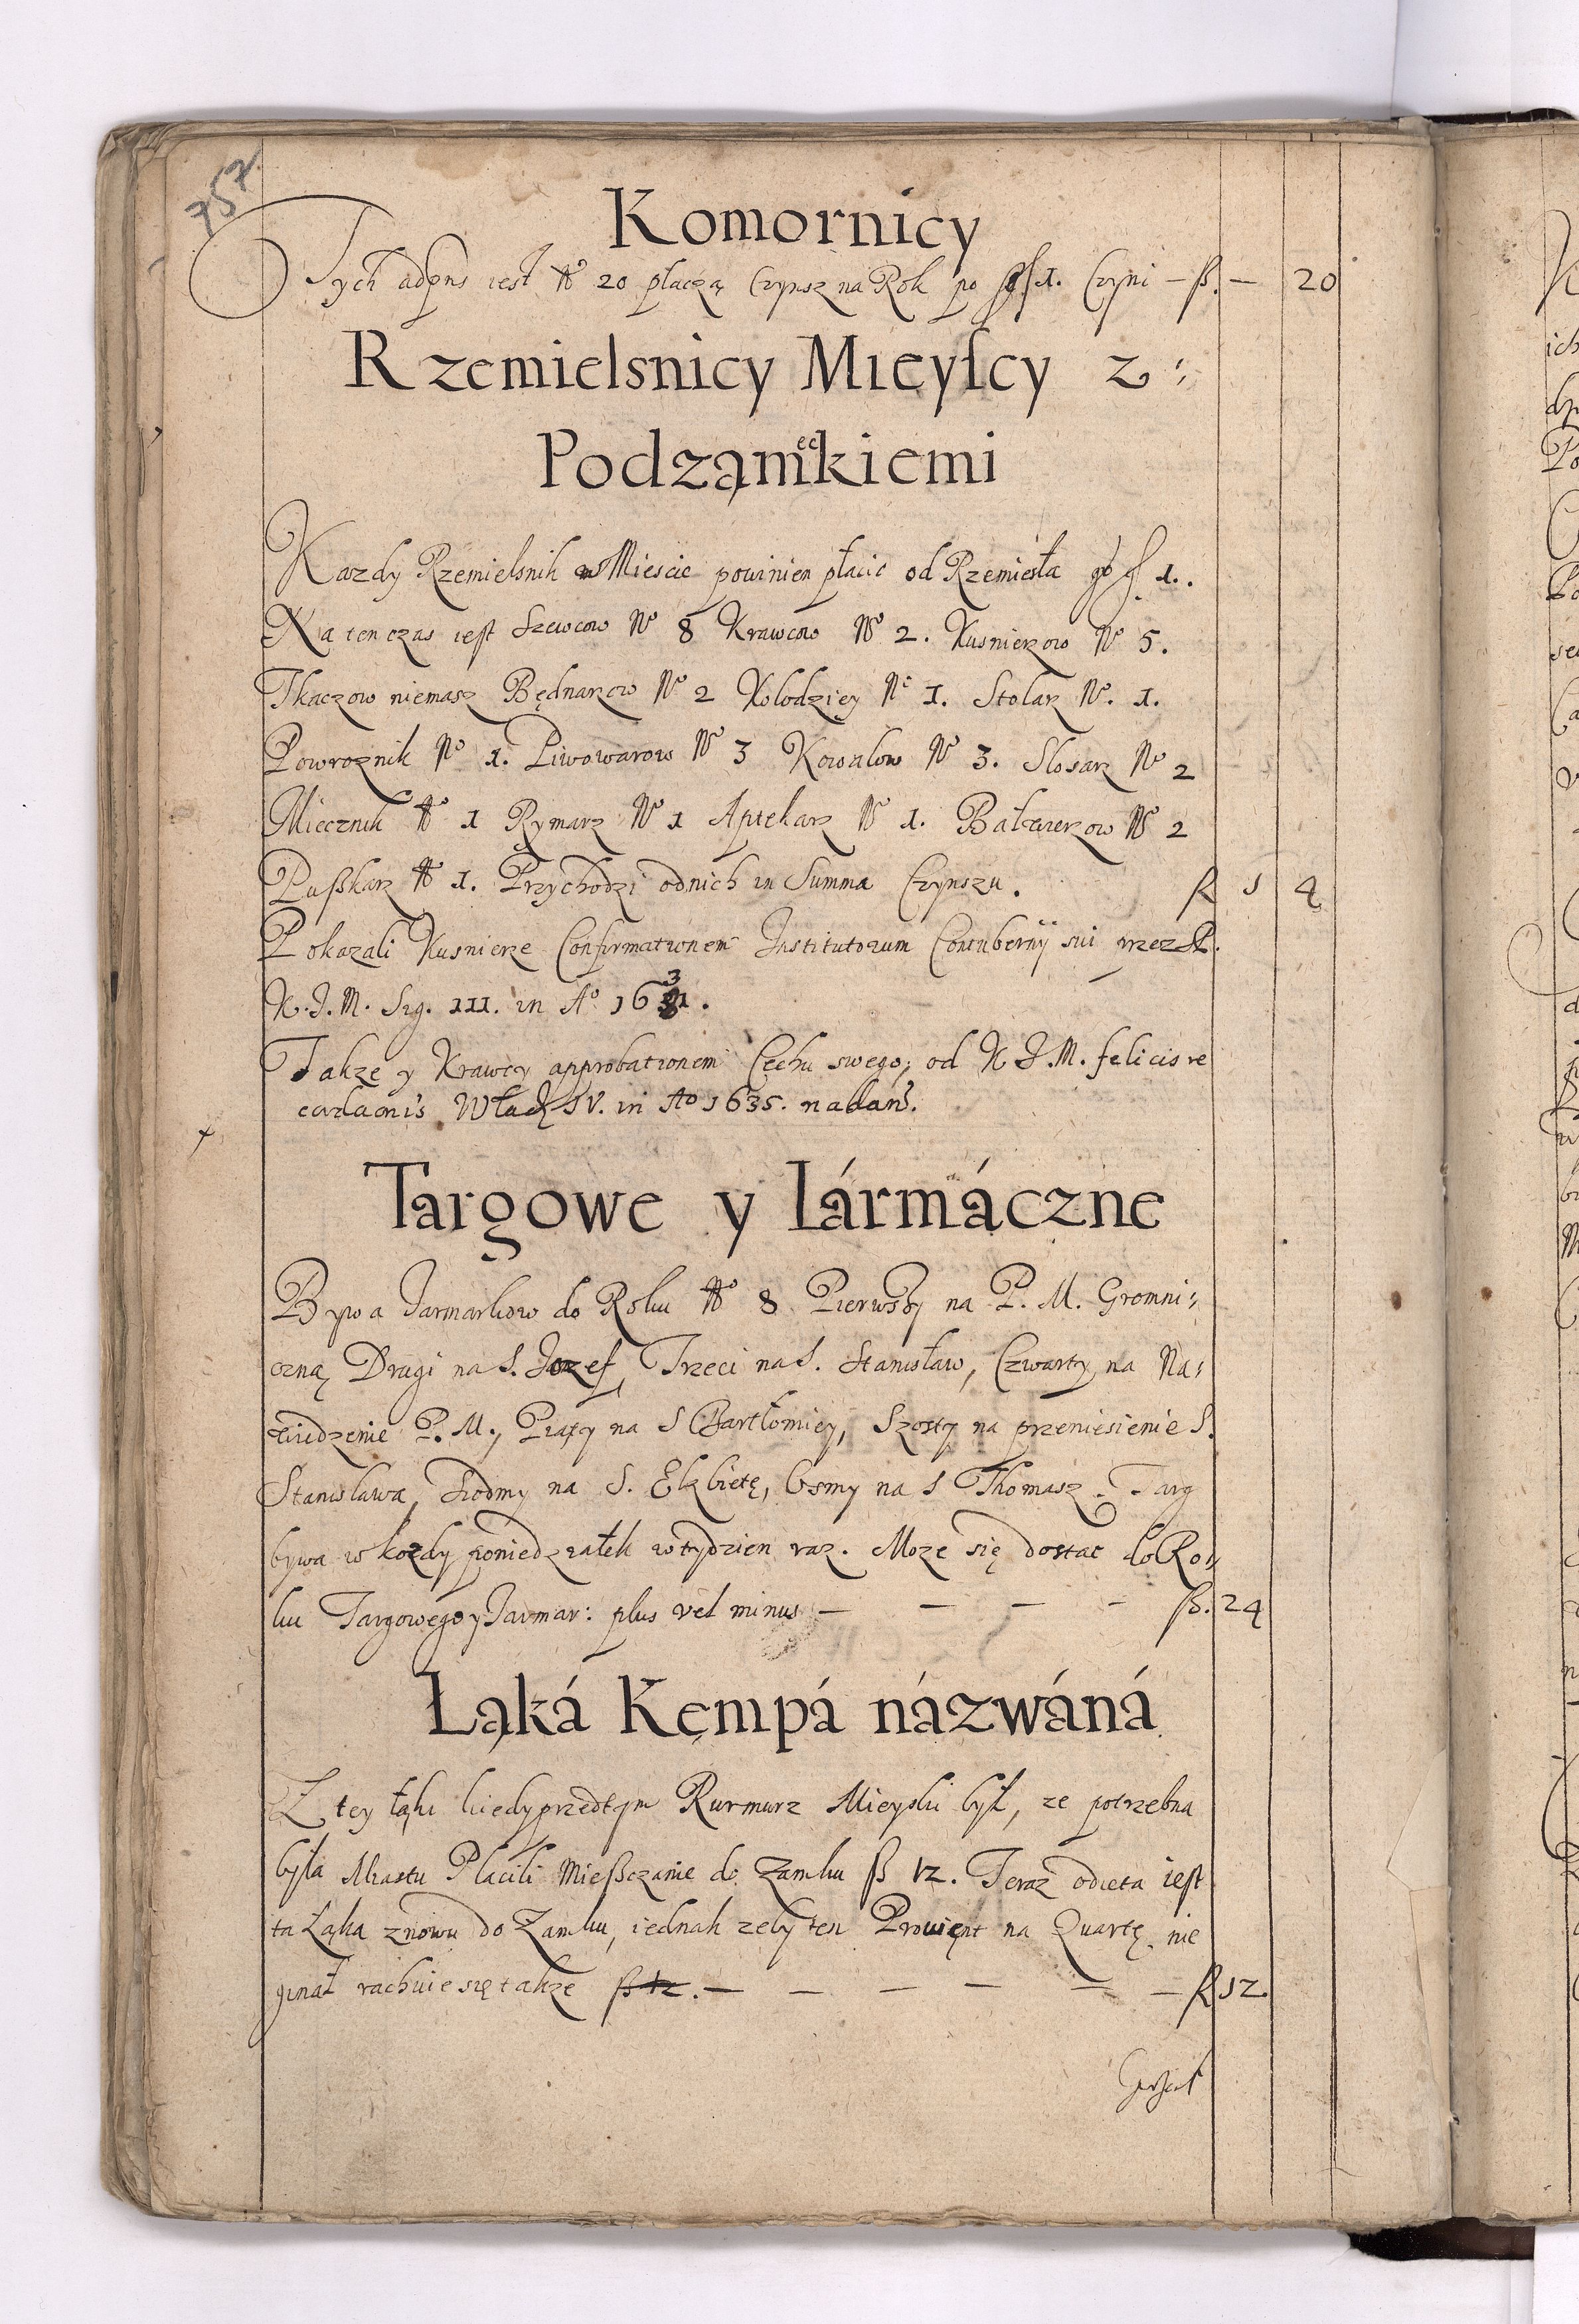 757.
Komornicy
Tych adpns iest No 20 płaczą Czynsz na Rok po gſ 1. Czyni — ß. — 20
Rzemielsnicy Mieyſcy z:
Podząmkiemi
Kazdy Rzemielsnik w Miescie powinien płacic od Rzemiesła gſ 1..
Na ten czas iest Szewcow No 8 Krawcow No 2. Kusnierzow No 5.
Tkaczow niemasz Będnarzow No 2 Kolodziey No 1. Stolarz No. 1.
Powroznik No 1. Piwowarow No 3 Kowalow No 3. Slosarz No 2
Miecznik No 1 Rymarz No 1 Aptekarz No 1. Balwierzow No 2
Pußkarz No 1. Przychodzi odnich in Summa Czynszu. ß 1 4
Pokazali Kusnierze Confirmationem Institutorum Contubernÿ sui przez
K.J.M. Sig. III. in Ao 1631.
Takze y Krawcy approbationem Cechu swego, od K J.M. felicis re
cordaonis Wład IV. in Ao 1635. nadan.
Targowe y Iármáczne
Bywa Jarmarkow do Roku No 8 Pierwßy na P. M. Gromni:
czną, Drugi na S. Jozef, Trzeci na S. Stanisław, Czwarty na Na:
wiedzenie P. M., Piąty na S Bartłomiey, Szosty na przeniesienie S.
Stanisława, Siodmy na S. Elzbietę, Osmy na S Thomasz. Targ
bywa w kozdy poniedziałek w tydzien raz. Moze się dostac do Ro:
ku Targowego y Jarmar: plus vel minus — — — — ß. 24
Łąká Kęmpá názwáná
Z tey łąki kiedyprzedtym Rurmurz Mieyski był, ze potrzebna
była Miastu Placili Mießczanie do Zamku ß 12. Teraz odieta iest
ta Łąka znowu do Zamku, iednak zeby ten Prowęnt na Quartę nie
ginął rachuie się takze ß 12. — — — — — — ß 12.